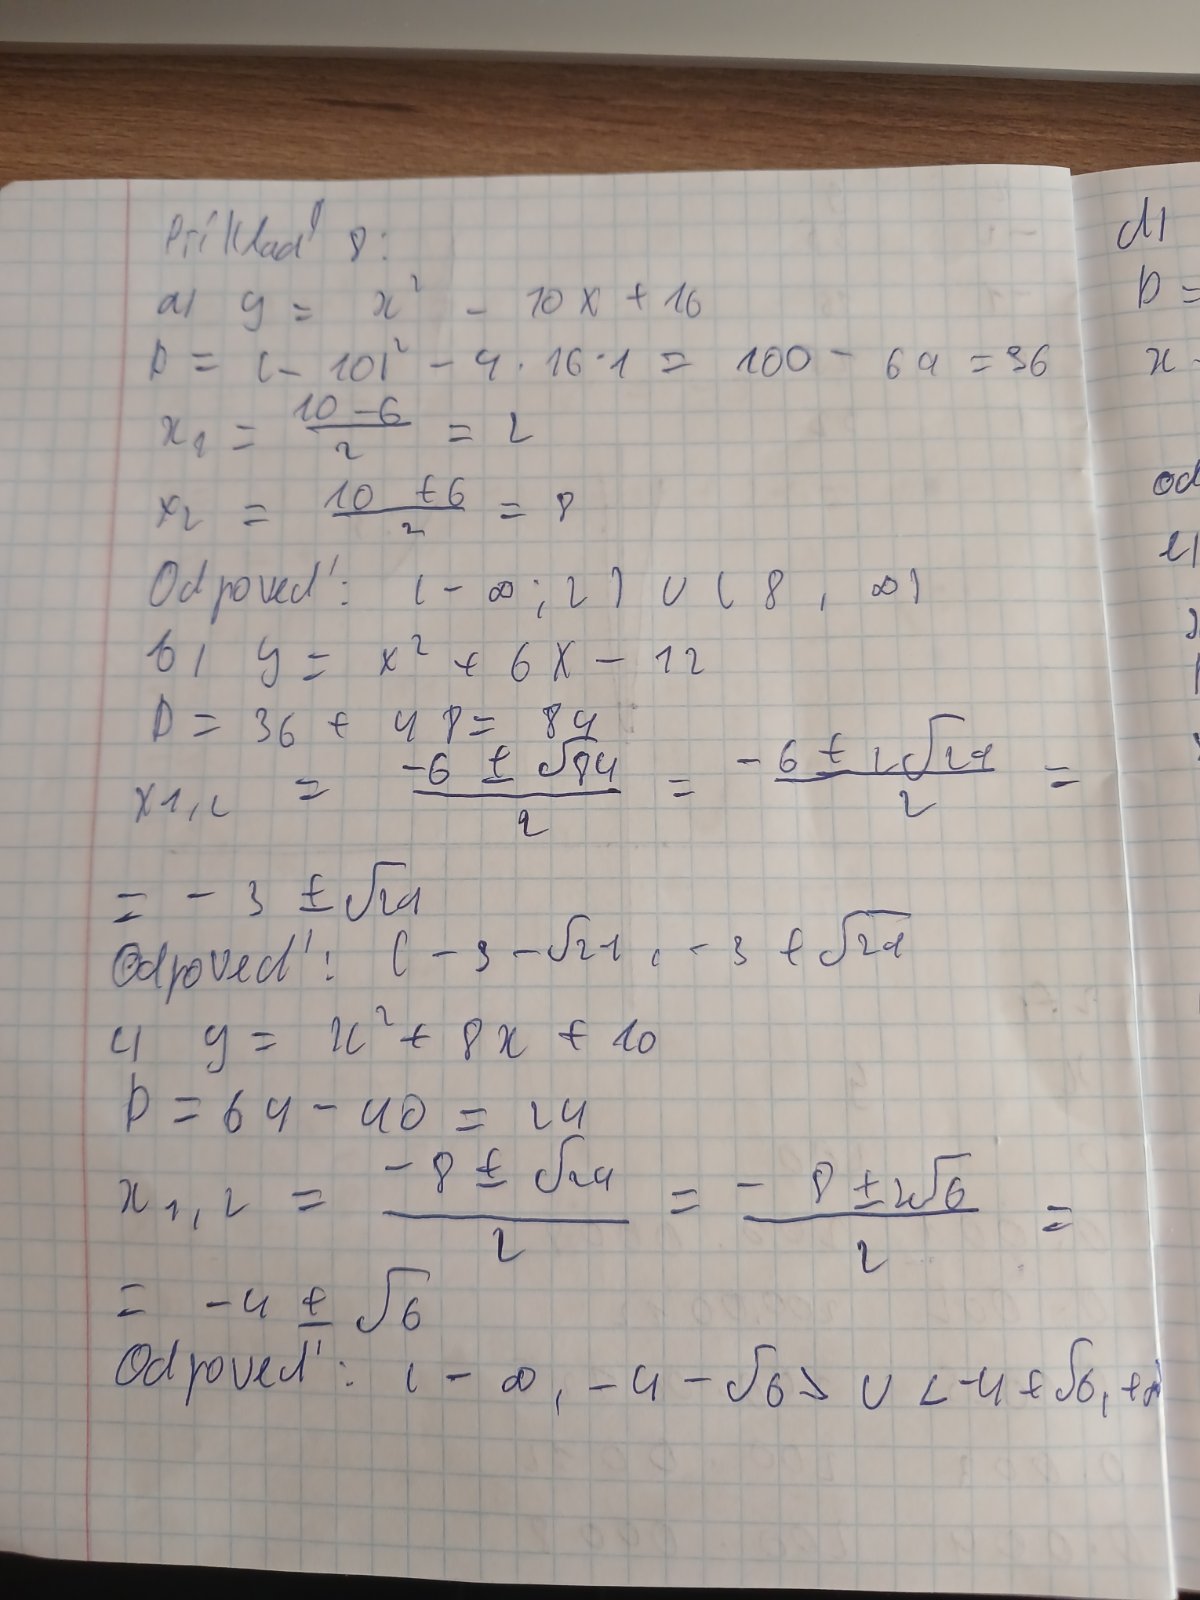 Příklad 8:
a) y = x² - 10x + 16
D = (-10)² - 4 · 16 · 1 = 100 - 64 = 36
x₁ = (10 - 6)/2 = 2
x₂ = (10 + 6)/2 = 8
Odpoved': (-∞; 2) ∪ (8, ∞)
b) y = x² + 6x - 12
D = 36 + 48 = 84
x1,2 = (-6 ± √84)/2 = (-6 ± 2√21)/2 =
= -3 ± √21
Odpoved': (-3 - √21, -3 + √21
c) y = x² + 8x + 10
D = 64 - 40 = 24
x1,2 = (-8 ± √24)/2 = (-8 ± 2√6)/2 =
= -4 ± √6
Odpoved': (-∞, -4 - √6> ∪ <-4 + √6, +∞
d)
D =
x
od
e)